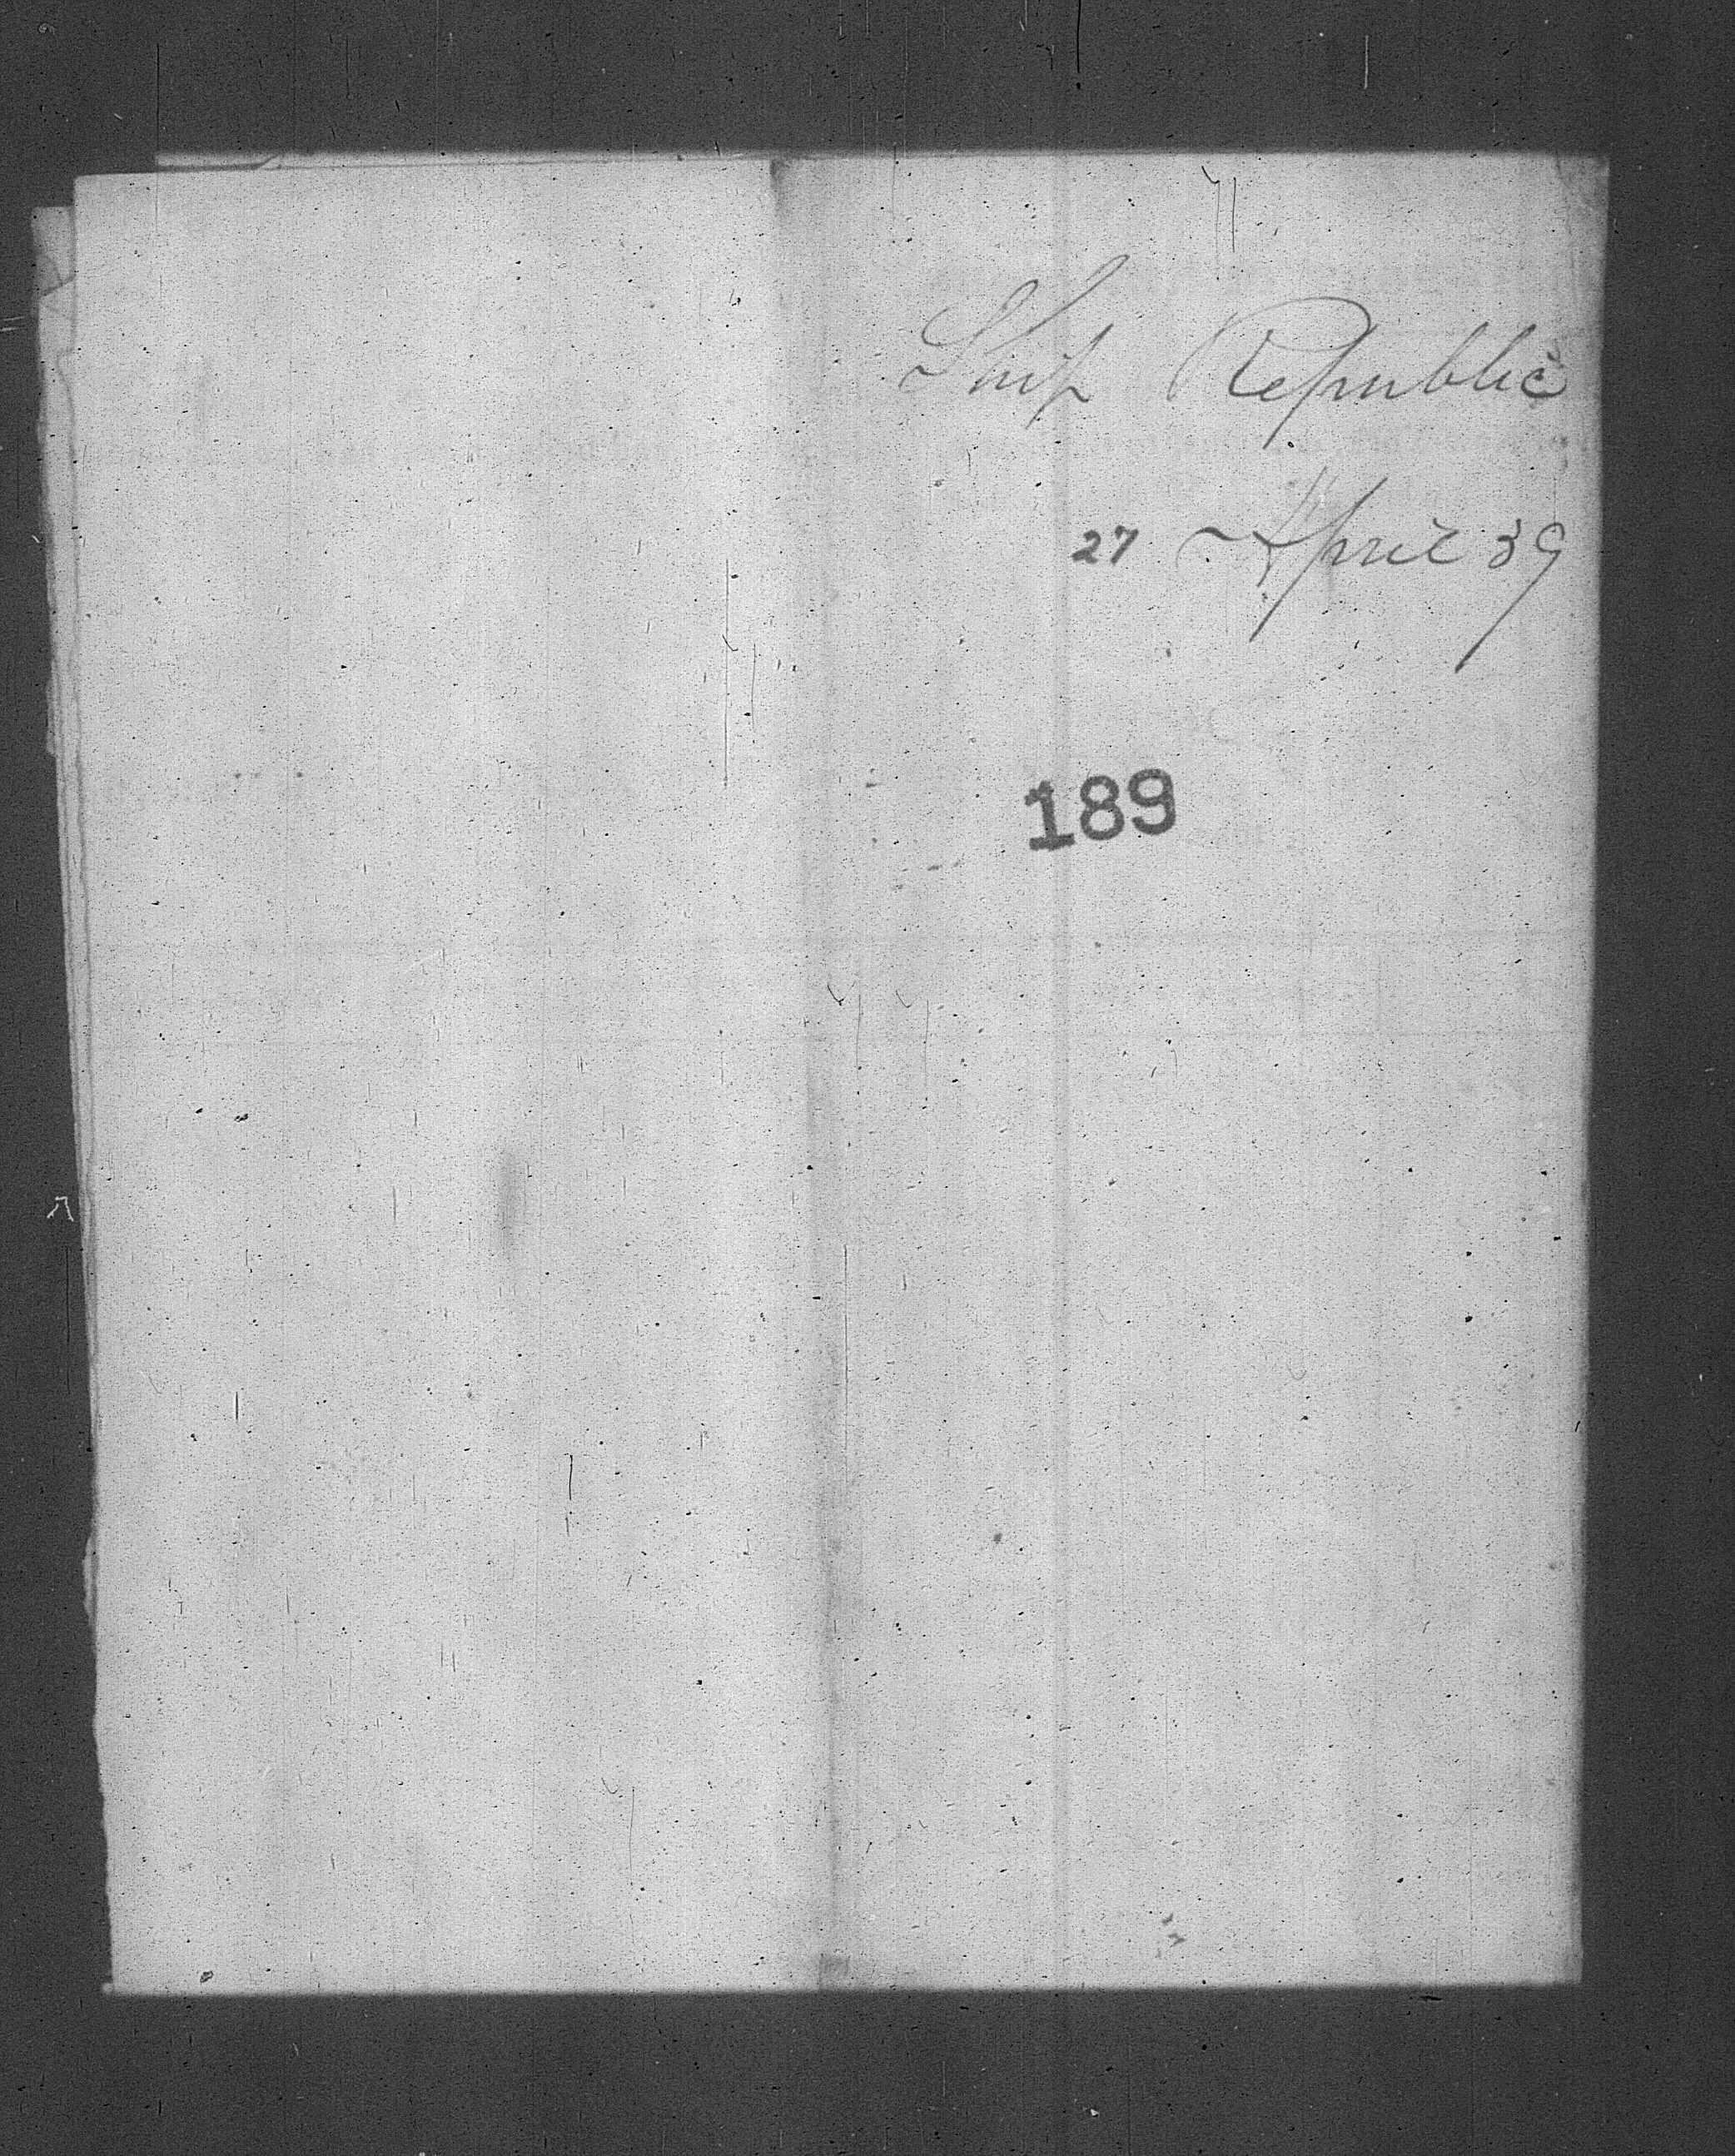 Ship Republic
27 April 39
189